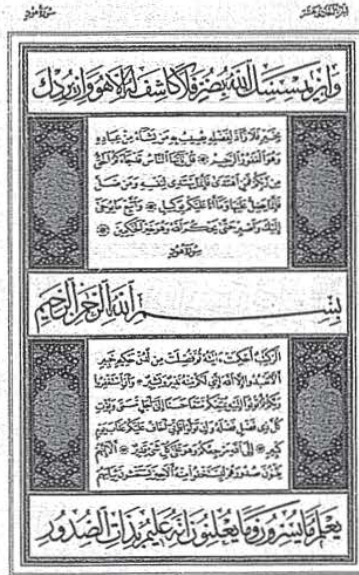 الجزء الحادي عشر
سورة هود
وان يمسسك الله بضر فلا كاشف له الا هو وان يردك
بخير فلا راد لفضله يصيب به من يشاء من عباده
وهو الغفور الرحيم قل يا ايها الناس قد جاءكم الحق
من ربكم فمن اهتدى فانما يهتدي لنفسه ومن ضل
فانما يضل عليها وما انا عليكم بوكيل واتبع ما يوحى
اليك واصبر حتى يحكم الله وهو خير الحاكمين
سورة هود
بسم الله الرحمن الرحيم
الر كتاب احكمت اياته ثم فصلت من لدن حكيم خبير
الا تعبدوا الا الله انني لكم منه نذير وبشير وان استغفروا
ربكم ثم توبوا اليه يمتعكم متاعا حسنا الى اجل مسمى ويؤت
كل ذي فضل فضله وان تولوا فاني اخاف عليكم عذاب يوم
كبير الى الله مرجعكم وهو على كل شيء قدير الا انهم
يثنون صدورهم ليستخفوا منه الا حين يستغشون ثيابهم
يعلم ما يسرون وما يعلنون انه عليم بذات الصدور